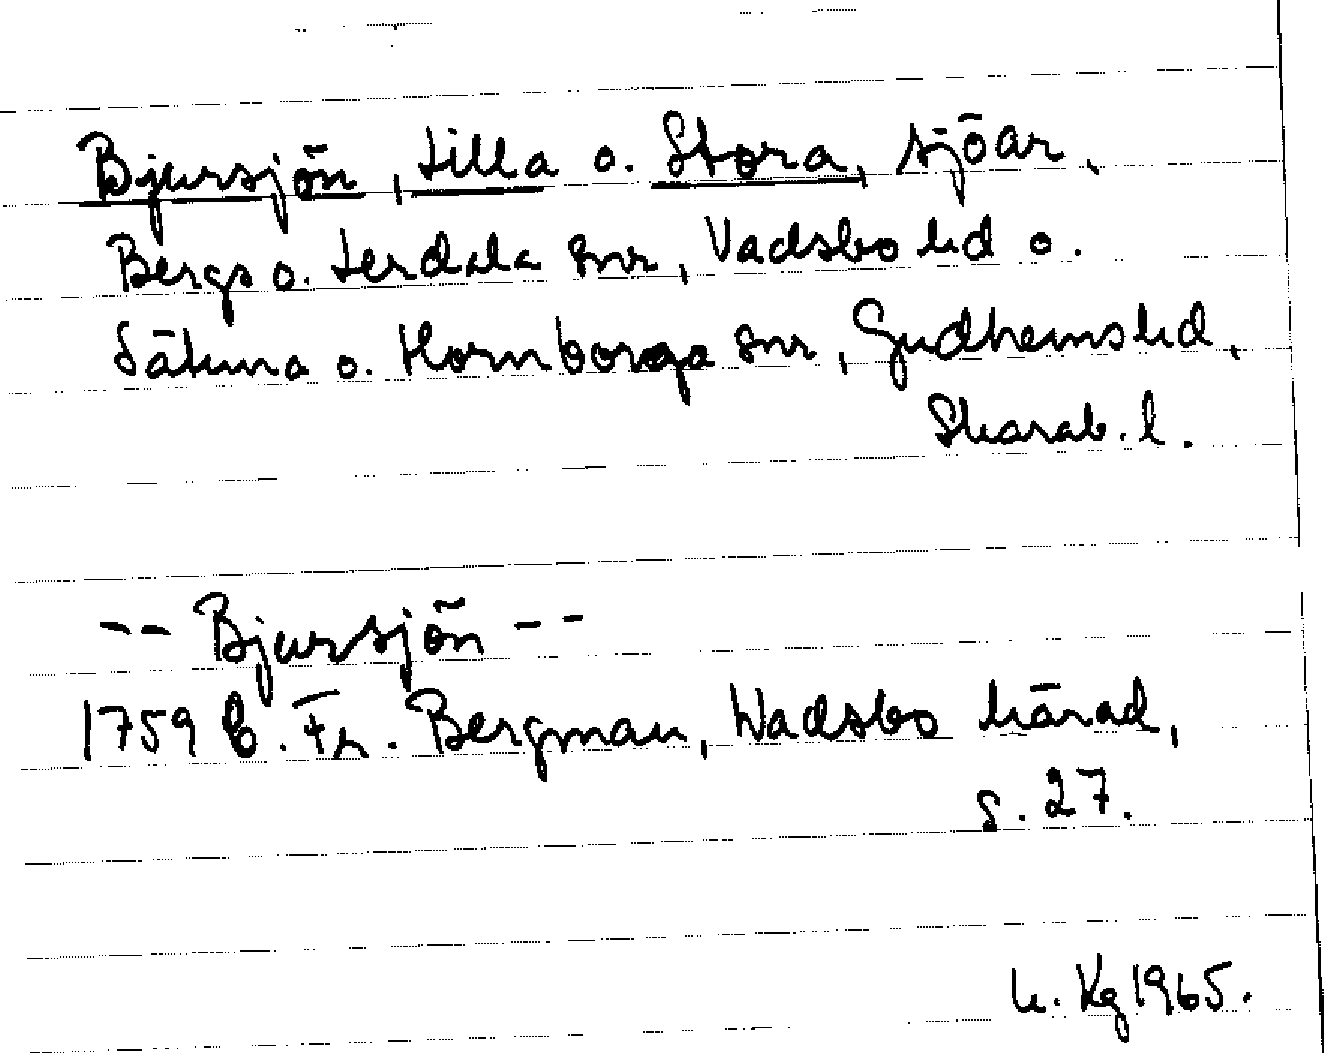 Bjursjön, Lilla o. Stora, sjöar,
Bergs o. Lerdala snr, Vadsbo hd o.
Sätuna o. Hornborga snr, Gudhems hd,
Skarab. l.
-- Bjursjön --
1759 C. Fr. Bergman, Wadsbo härad,
s. 27.
h. Kg 1965.